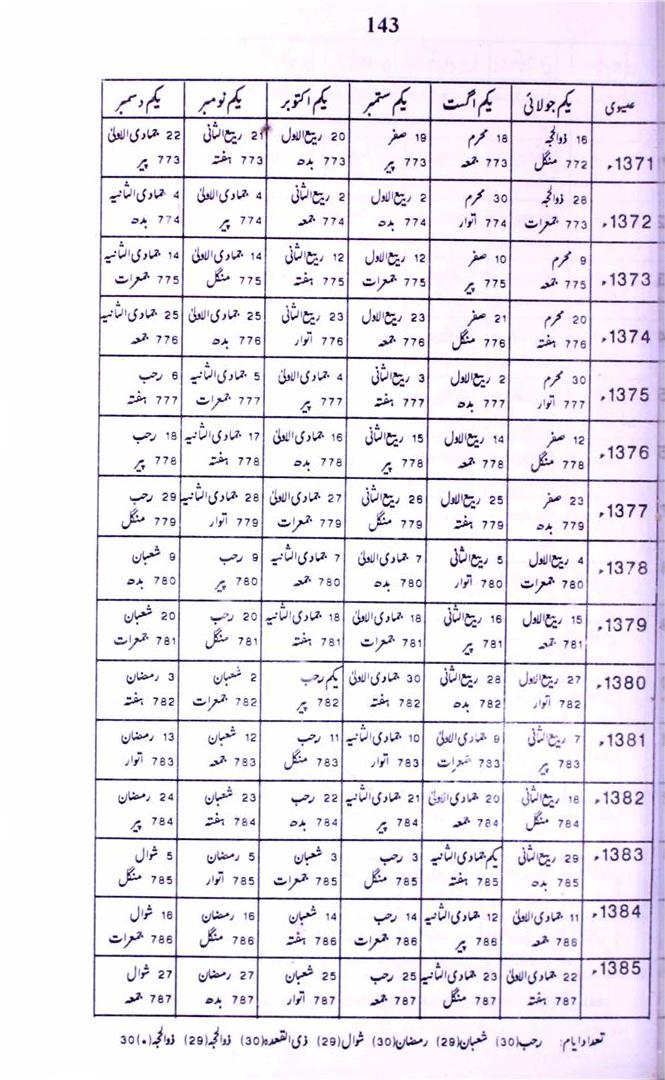 143
عیسوی یکم جولائی یکم اگست یکم ستمبر یکم اکتوبر یکم نومبر یکم دسمبر
1371ء 16 ذوالحجہ 18 محرم 19 صفر 20 ربیع الاول 21 ربیع الثانی 22 جمادی الاولیٰ
772 منگل 773 جمعہ 773 پیر 773 بدھ 773 ہفتہ 773 پیر
1372ء 28 ذوالحجہ 30 محرم 2 ربیع الاول 2 ربیع الثانی 4 جمادی الاولیٰ 4 جمادی الثانیہ
773 جمعرات 774 اتوار 774 بدھ 774 جمعہ 774 پیر 774 بدھ
1373ء 9 محرم 10 صفر 12 ربیع الاول 12 ربیع الثانی 14 جمادی الاولیٰ 14 جمادی الثانیہ
775 جمعہ 775 پیر 775 جمعرات 775 ہفتہ 775 منگل 775 جمعرات
1374ء 20 محرم 21 صفر 23 ربیع الاول 23 ربیع الثانی 25 جمادی الاولیٰ 25 جمادی الثانیہ
776 ہفتہ 776 منگل 776 جمعہ 776 اتوار 776 بدھ 776 جمعہ
1375ء 30 محرم 2 ربیع الاول 3 ربیع الثانی 4 جمادی الاولیٰ 5 جمادی الثانیہ 6 رجب
777 اتوار 777 بدھ 777 ہفتہ 777 پیر 777 جمعرات 777 ہفتہ
1376ء 12 صفر 14 ربیع الاول 15 ربیع الثانی 16 جمادی الاولیٰ 17 جمادی الثانیہ 18 رجب
778 منگل 778 جمعہ 778 پیر 778 بدھ 778 ہفتہ 778 پیر
1377ء 23 صفر 25 ربیع الاول 26 ربیع الثانی 27 جمادی الاولیٰ 28 جمادی الثانیہ 29 رجب
779 بدھ 779 ہفتہ 779 منگل 779 جمعرات 779 اتوار 779 منگل
1378ء 4 ربیع الاول 5 ربیع الثانی 7 جمادی الاولیٰ 7 جمادی الثانیہ 9 رجب 9 شعبان
780 جمعرات 780 اتوار 780 بدھ 780 جمعہ 780 پیر 780 بدھ
1379ء 15 ربیع الاول 16 ربیع الثانی 18 جمادی الاولیٰ 18 جمادی الثانیہ 20 رجب 20 شعبان
781 جمعہ 781 پیر 781 جمعرات 781 ہفتہ 781 منگل 781 جمعرات
1380ء 27 ربیع الاول 28 ربیع الثانی 30 جمادی الاولیٰ یکم رجب 2 شعبان 3 رمضان
782 اتوار 782 بدھ 782 ہفتہ 782 پیر 782 جمعرات 782 ہفتہ
1381ء 7 ربیع الثانی 9 جمادی الاولیٰ 10 جمادی الثانیہ 11 رجب 12 شعبان 13 رمضان
783 پیر 783 جمعرات 783 اتوار 783 منگل 783 جمعہ 783 اتوار
1382ء 18 ربیع الثانی 20 جمادی الاولیٰ 21 جمادی الثانیہ 22 رجب 23 شعبان 24 رمضان
784 منگل 784 جمعہ 784 پیر 784 بدھ 784 ہفتہ 784 پیر
1383ء 29 ربیع الثانی یکم جمادی الثانیہ 3 رجب 3 شعبان 5 رمضان 5 شوال
785 بدھ 785 ہفتہ 785 منگل 785 جمعرات 785 اتوار 785 منگل
1384ء 11 جمادی الاولیٰ 12 جمادی الثانیہ 14 رجب 14 شعبان 16 رمضان 16 شوال
786 جمعہ 786 پیر 786 جمعرات 786 ہفتہ 786 منگل 786 جمعرات
1385ء 22 جمادی الاولیٰ 23 جمادی الثانیہ 25 رجب 25 شعبان 27 رمضان 27 شوال
787 ہفتہ 787 منگل 787 جمعہ 787 اتوار 787 بدھ 787 جمعہ
تعداد ایام: رجب(30) شعبان(29) رمضان(30) شوال(29) ذی القعدہ(30) ذوالحجہ(29) ذوالحجہ(•)30